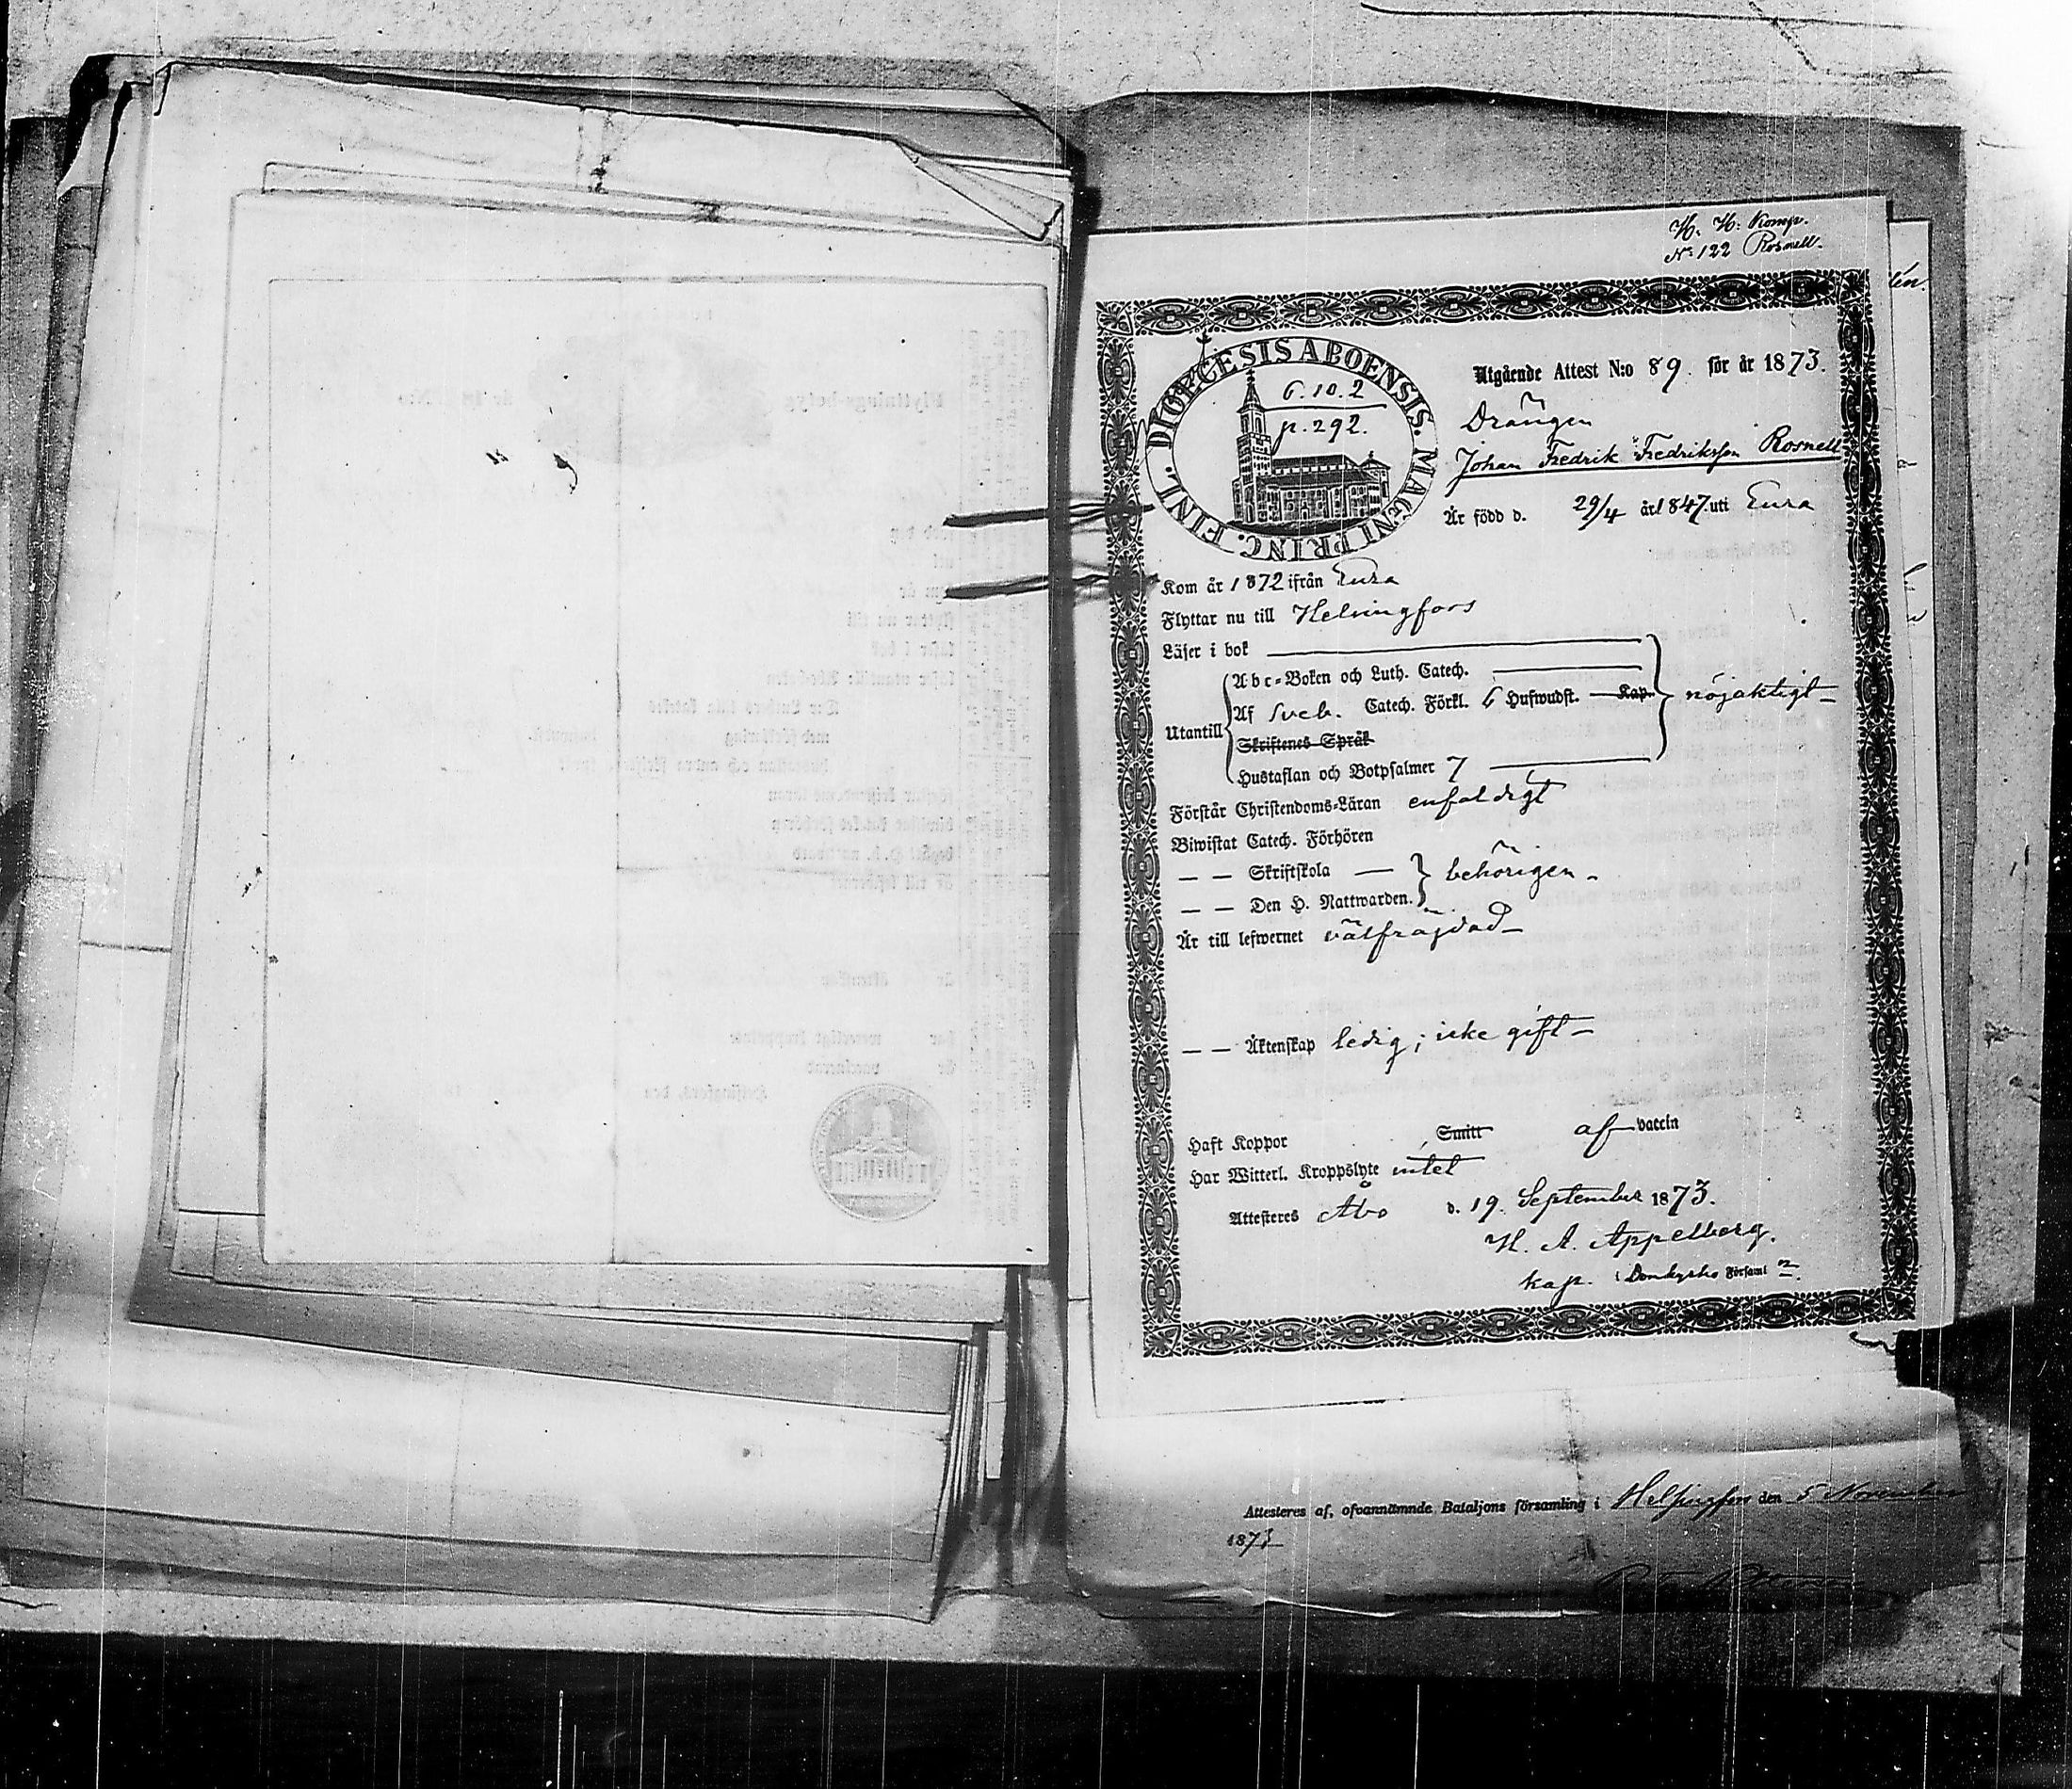 H. H. Komp.
No 122 Rosnell.
DIOECESIS ABOENSIS. MAGNI PRINC. FINL.
6.10.2
p. 292.
Utgående Attest N:o 89. för år 1873.
Drängen
Johan Fredrik Fredriksson Rosnell
Är född d. 29/4 år 1847 uti Eura
Kom år 1872 ifrån Eura
Flyttar nu till Helsingfors
Läser i bok
Utantill
Abc-Boken och Luth. Catech.
Af Sveb. Catech. Förkl. 6 Hufwudst. Kap.
nöjaktigt
Skriftenes Språk
Hustaflan och Botpsalmer 7
Förstår Christendoms-Läran enfaldigt
Biwistat Catech. Förhören
— — Skriftskola — behörigen.
— — Den H. Nattwarden.
Är till lefwernet välfräjdad
— — Äktenskap ledig; icke gift
Haft Koppor Smitt af vaccin
Har Witterl. Kroppslyte intet
Attesteres Åbo d. 19. September 1873.
H. A. Appelberg.
kap. i Domkyrko Församl
Attesteres af, ofvannämnde Bataljons församling i Helsingfors den 5 November
1873